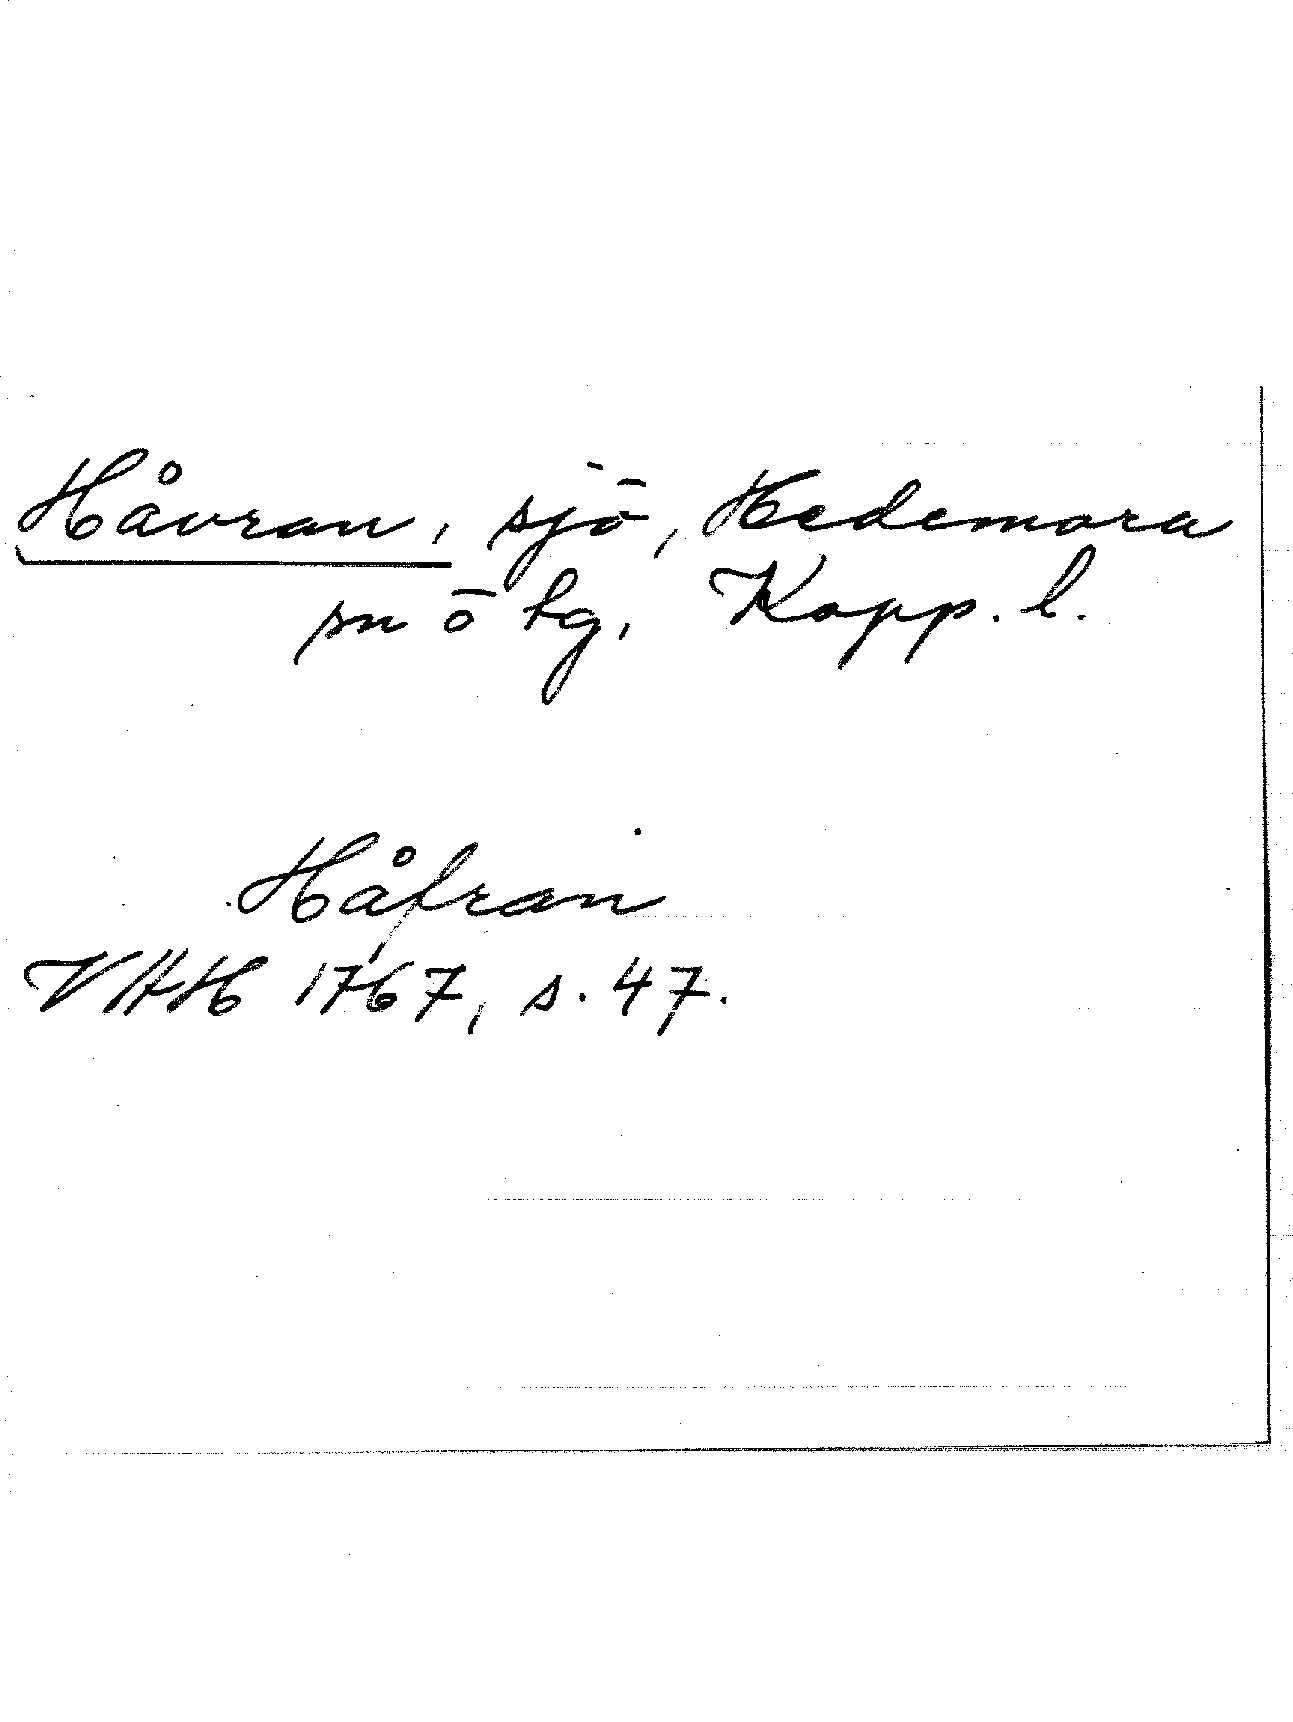 Håvran, sjö, Hedemora
sn ō tg, Kopp. l.
Håfran
VHH 1767, s. 47.